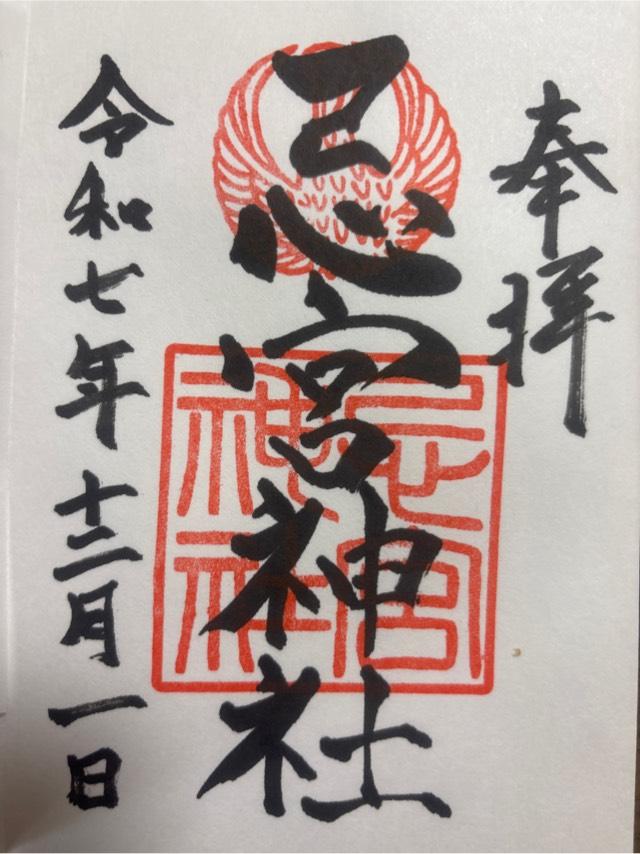 奉拝
忌宮神社
忌宮神社
令和七年十二月一日